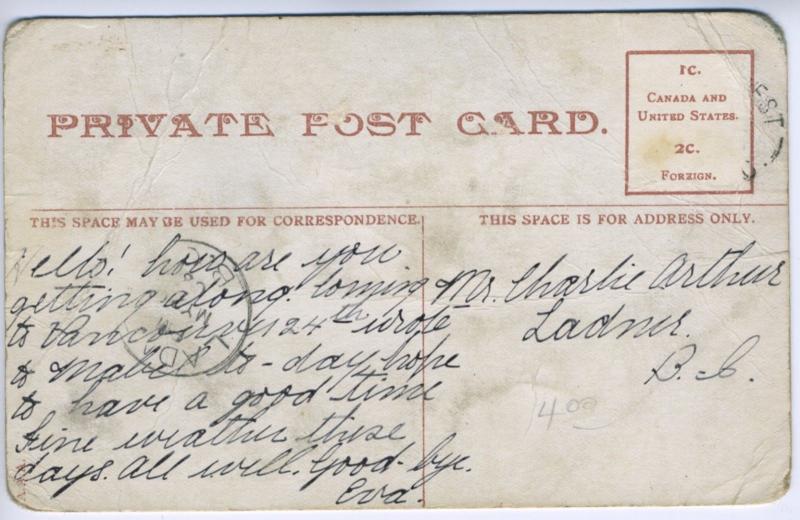 1C.
CANADA AND
UNITED STATES.
2C.
FORZIGN.
PRIVATE POST CARD.
EST
THIS SPACE MAY BE USED FOR CORRESPONDENCE.
THIS SPACE IS FOR ADDRESS ONLY.
Hello! how are you
getting along. Coming
to Vancouver 24th wrote
to Mabel to-day hope
to have a good time
Fine weather these
days. All well. Good-bye.
Eva.
Mr. Charlie Arthur
Ladner.
B.C.
4.00
LAD